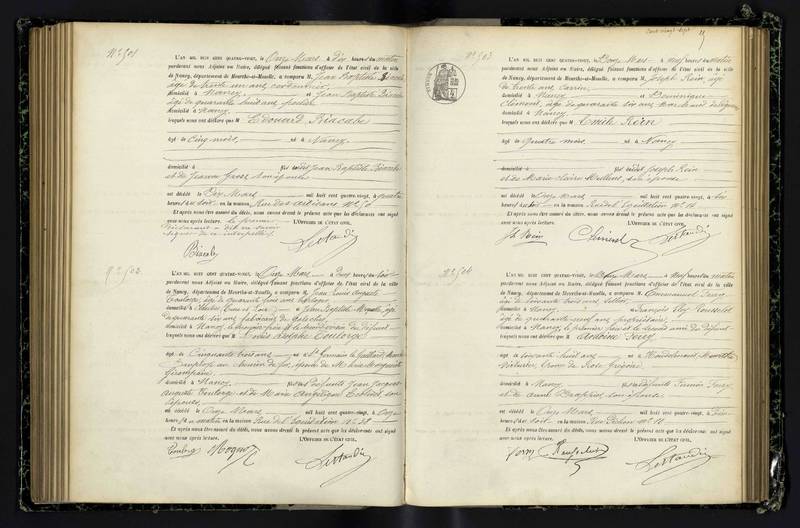 N° 501
L'AN MIL HUIT CENT QUATRE-VINGT, le Onze Mars à dix heures du matin
pardevant nous Adjoint au Maire, délégué faisant fonctions d'officier de l'état civil de la ville
de Nancy, département de Meurthe-et-Moselle, a comparu M. Jean Baptiste
âgé de trente un ans cordonnier
domicilié à Nancy et Jean Baptiste
âgé de quarante huit ans
domicilié à Nancy
lesquels nous ont déclaré que M Edouard Biacabe
âgé de Cinq mois, né à Nancy
domicilié à fils de dit Jean Baptiste Biacabe
et de Jeanne son épouse
est décédé le Dix Mars mil huit cent quatre-vingt, à quatre
heures du soir en la maison Rue des Artisans N° 50
Et après nous être assuré du décès, nous avons dressé le présent acte que les déclarants ont signé
avec nous après lecture. le premier L'OFFICIER DE L'ÉTAT CIVIL,
déclarant a dit ne savoir
signer de ce interpellé
N° 502
L'AN MIL HUIT CENT QUATRE-VINGT, le Onze Mars à deux heures du soir
pardevant nous Adjoint au Maire, délégué faisant fonctions d'officier de l'état civil de la ville
de Nancy, département de Meurthe-et-Moselle, a comparu M. Jean Louis Auguste
Toulorge, âgé de quarante ans horloger
domicilié à Chartres, Eure et Loir et Jean Baptiste âgé
de quarante six ans fabricant de galoches
domicilié à Nancy le premier frère et le second voisin du défunt
lesquels nous ont déclaré que M Louis Adolphe Toulorge
âgé de Cinquante trois ans né à St Germain le Gaillard, Manche
Employé au chemin de fer, époux de M Marguerite
domicilié à Nancy fils de défunts Jean Jacques
Auguste Toulorge et de Marie Angélique
épouse
est décédé le Onze Mars mil huit cent quatre-vingt, à Onze
heures du matin en la maison Rue de l'Equitation N° 28
Et après nous être assuré du décès, nous avons dressé le présent acte que les déclarants ont signé
avec nous après lecture. L'OFFICIER DE L'ÉTAT CIVIL,
Toulorge
Cent vingt sept
N° 503
L'AN MIL HUIT CENT QUATRE-VINGT, le Douze Mars à neuf heures du matin
pardevant nous Adjoint au Maire, délégué faisant fonctions d'officier de l'état civil de la ville
de Nancy, département de Meurthe-et-Moselle, a comparu M. Joseph Rein, âgé
de trente ans
domicilié à Nancy et Dominique
Clément, âgé de quarante six ans marchand de
domicilié à Nancy
lesquels nous ont déclaré que M Emile Rein
âgé de Quatre mois, né à Nancy
domicilié à fils de dit Joseph Rein
et de Marie Claire son épouse
est décédé le Onze Mars mil huit cent quatre-vingt, à six
heures du soir en la maison Rue de l'Equitation N° 14
Et après nous être assuré du décès, nous avons dressé le présent acte que les déclarants ont signé
avec nous après lecture. L'OFFICIER DE L'ÉTAT CIVIL,
Rein Clément
N° 504
L'AN MIL HUIT CENT QUATRE-VINGT, le Douze Mars à neuf heures du matin
pardevant nous Adjoint au Maire, délégué faisant fonctions d'officier de l'état civil de la ville
de Nancy, département de Meurthe-et-Moselle, a comparu M. Emmanuel
âgé de soixante trois ans sellier
domicilié à Nancy et François Eloy
âgé de quarante neuf ans propriétaire
domicilié à Nancy le premier frère et le second ami du défunt
lesquels nous ont déclaré que M Antoine
âgé de soixante huit ans né à Meurthe
Voiturier, époux de Rose
domicilié à Nancy fils de défunts Firmin
et de Anne son épouse
est décédé le Onze Mars mil huit cent quatre-vingt, à
heures du soir en la maison Rue Pichon N° 10
Et après nous être assuré du décès, nous avons dressé le présent acte que les déclarants ont signé
avec nous après lecture. L'OFFICIER DE L'ÉTAT CIVIL,